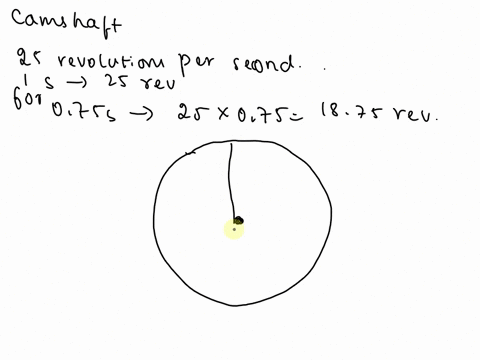 Camshaft
25 revolutions per second.
1 s → 25 rev
for 0.75s → 25 × 0.75 = 18.75 rev.